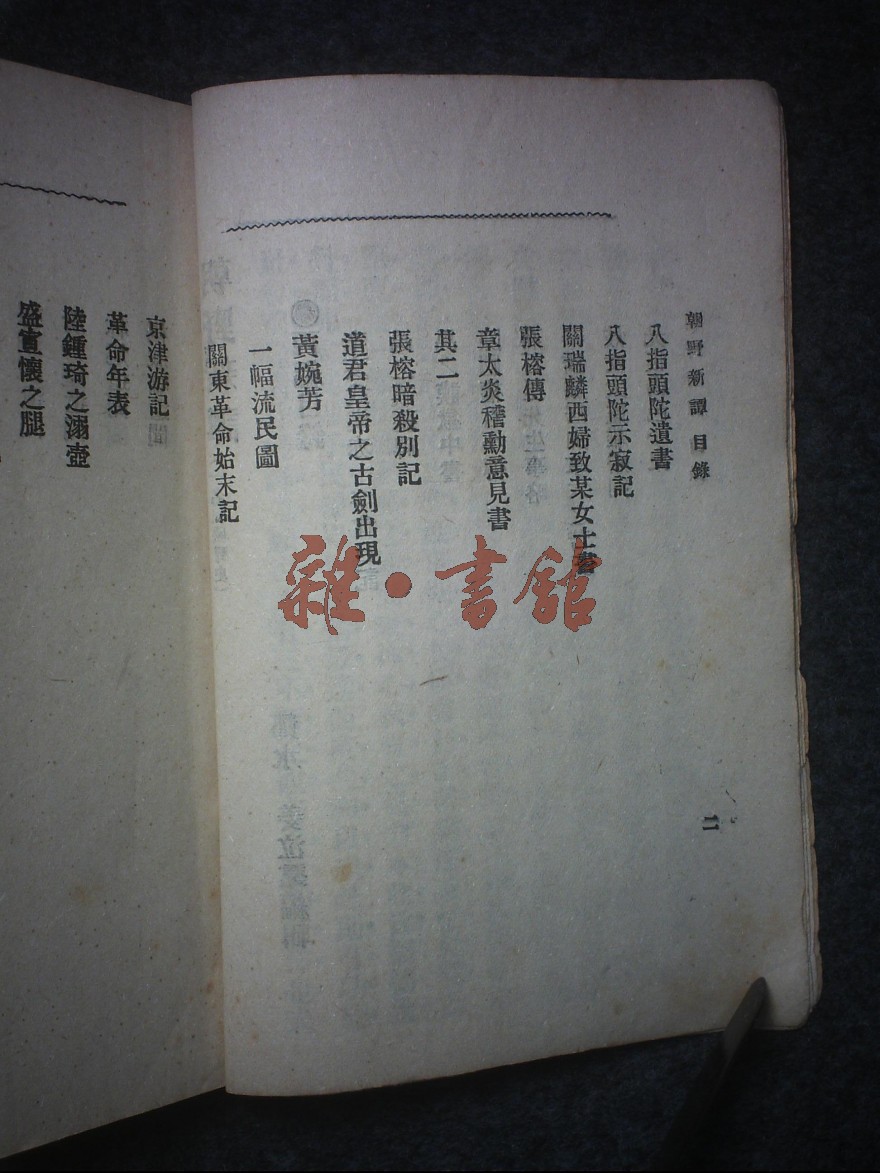 朝野新譚 目錄
八指頭陀遺書
八指頭陀示寂記
關瑞麟西婦致某女士書
張榕傳
章太炎稽勳意見書
其二
張榕暗殺別記
道君皇帝之古劍出現
黃婉芳
一幅流民圖
關東革命始末記
二
京津游記
革命年表
陸鍾琦之溺壺
盛宣懷之腿
雜·書館